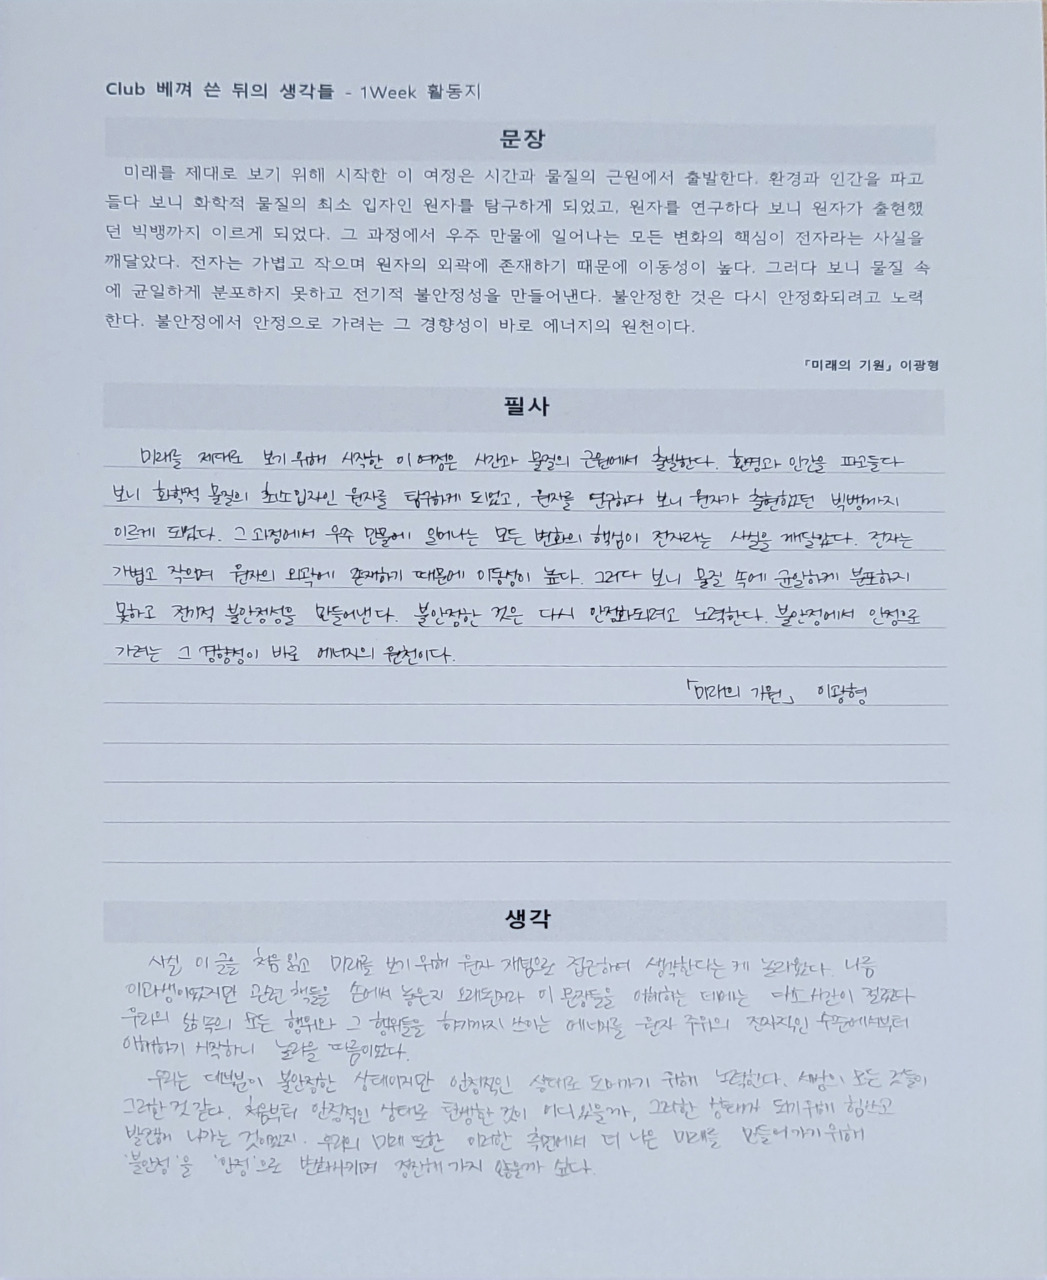 Club 베껴 쓴 뒤의 생각들 - 1Week 활동지
문장
미래를 제대로 보기 위해 시작한 이 여정은 시간과 물질의 근원에서 출발한다. 환경과 인간을 파고
들다 보니 화학적 물질의 최소 입자인 원자를 탐구하게 되었고, 원자를 연구하다 보니 원자가 출현했
던 빅뱅까지 이르게 되었다. 그 과정에서 우주 만물에 일어나는 모든 변화의 핵심이 전자라는 사실을
깨달았다. 전자는 가볍고 작으며 원자의 외곽에 존재하기 때문에 이동성이 높다. 그러다 보니 물질 속
에 균일하게 분포하지 못하고 전기적 불안정성을 만들어낸다. 불안정한 것은 다시 안정화되려고 노력
한다. 불안정에서 안정으로 가려는 그 경향성이 바로 에너지의 원천이다.
「미래의 기원」 이광형
필사
미래를 제대로 보기 위해 시작한 이 여정은 시간과 물질의 근원에서 출발한다. 환경과 인간을 파고들다
보니 화학적 물질의 최소입자인 원자를 탐구하게 되었고, 원자를 연구하다 보니 원자가 출현했던 빅뱅까지
이르게 되었다. 그 과정에서 우주 만물에 일어나는 모든 변화의 핵심이 전자라는 사실을 깨달았다. 전자는
가볍고 작으며 원자의 외곽에 존재하기 때문에 이동성이 높다. 그러다 보니 물질 속에 균일하게 분포하지
못하고 전기적 불안정성을 만들어낸다. 불안정한 것은 다시 안정화되려고 노력한다. 불안정에서 안정으로
가려는 그 경향성이 바로 에너지의 원천이다.
「미래의 기원」 이광형
생각
사실, 이 글을 처음 읽고 미래를 보기 위해 원자 개념으로 접근하여 생각한다는 게 놀라웠다. 나름
이과생이었지만 관련 책들을 손에서 놓은지 오래된지라 이 문장들을 이해하는 데에는 다소 시간이 걸렸다
우리의 삶 속의 모든 행위와 그 행위들을 하기까지 쓰이는 에너지를 원자 주위의 전자적인 수준에서부터
이해하기 시작하니 놀라울 따름이었다.
우리는 대부분이 불안정한 상태이지만 안정적인 상태로 도어가기 위해 노력한다. 세상의 모든 것들이
그러한 것 같다. 처음부터 안정적인 상태로 탄생한 것이 어디 있을까, 그러한 상태가 되기 위해 힘쓰고
발전해 나가는 것이겠지. 우리의 미래 또한 이러한 측면에서 더 나은 미래를 만들어 가기 위해
'불안정'을 '안정'으로 변화시키며 정진해 가지 않을까 싶다.